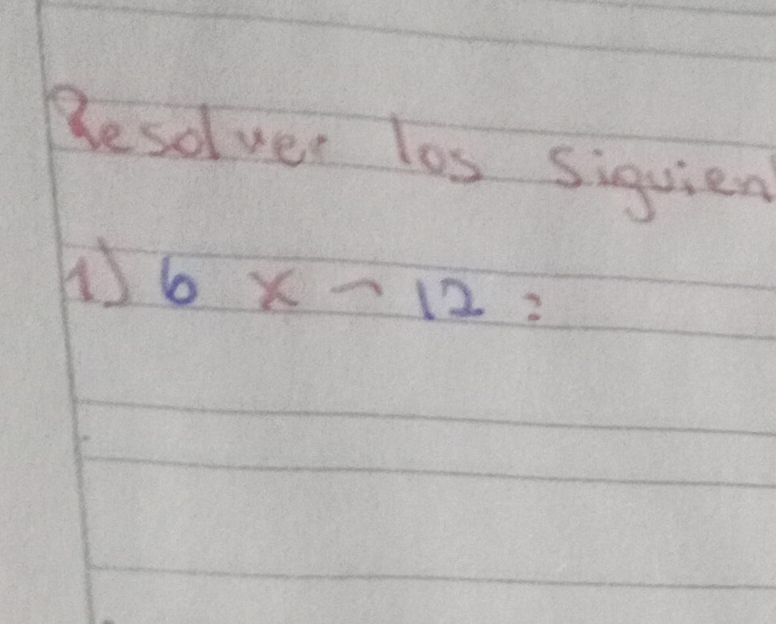 Resolver los siguien
1) 6 x - 12 =